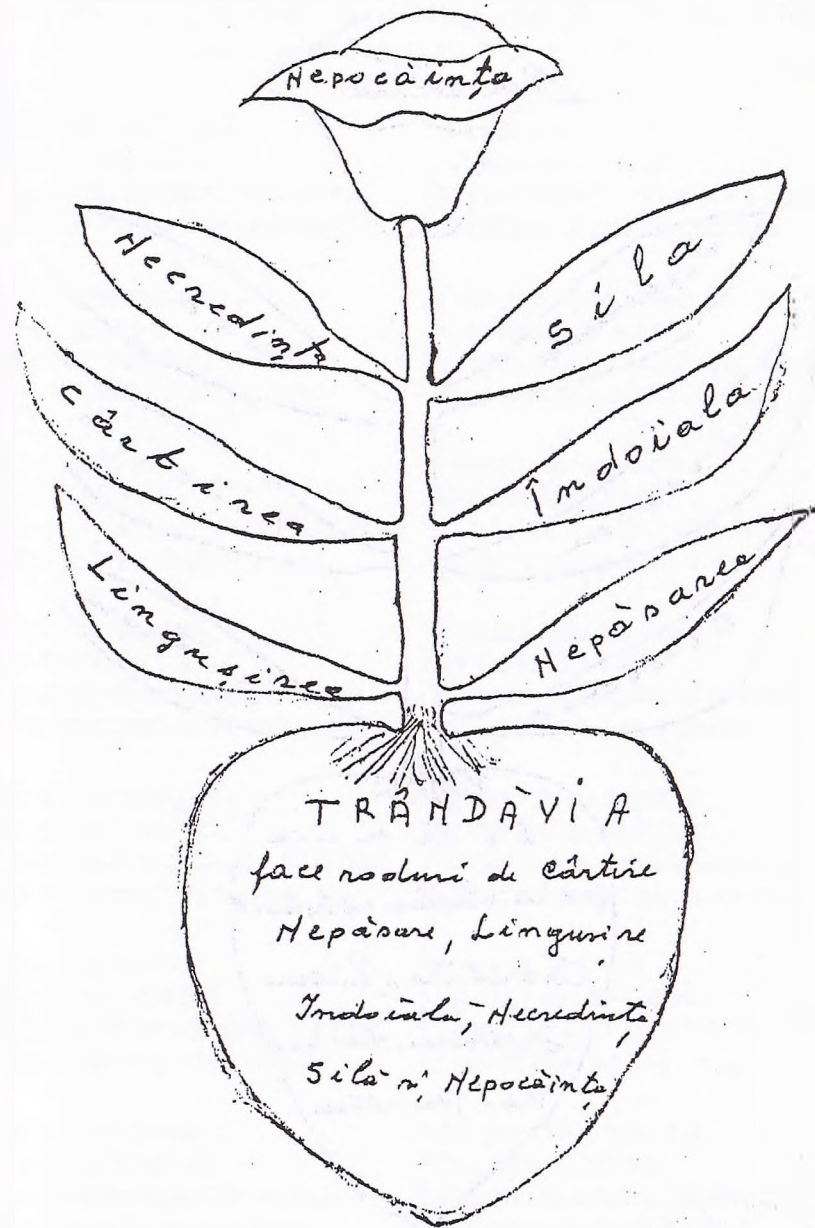 Nepocàința
Necredința
Sila
Cârtirea
Îndoiala
Lingușirea
Nepàsarea
TRÂNDÀVIA
face roduri de cârtire
Nepàsare, Lingușire
Indoiala, Necredința
Silà și Nepocàința